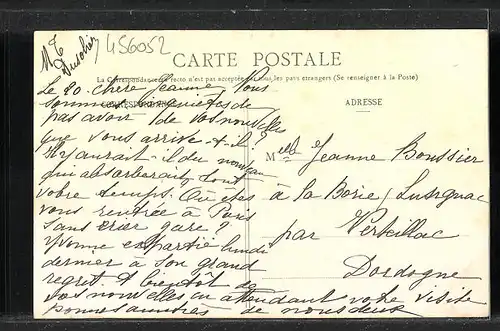 456052
CARTE POSTALE
La Correspondance au recto n'est pas acceptée par tous les pays étrangers (Se renseigner à la Poste)
CORRESPONDANCE
ADRESSE
Le 20. chère Jeanne, Nous
sommes de
pas avoir de vos nouvelles
que vous arrive-t-il?
Y aurait-il du nouveau
qui absorberait tout
votre temps. Ou êtes
vous rentrée à Paris
sans crier gare?
Yvonne est partie lundi
dernier à son grand
regret. A bientôt de
vos nouvelles en attendant votre visite
bonnes amitiés de nous deux
Melle Jeanne Boussier
à la Borie, Lusignac
par Verteillac
Dordogne